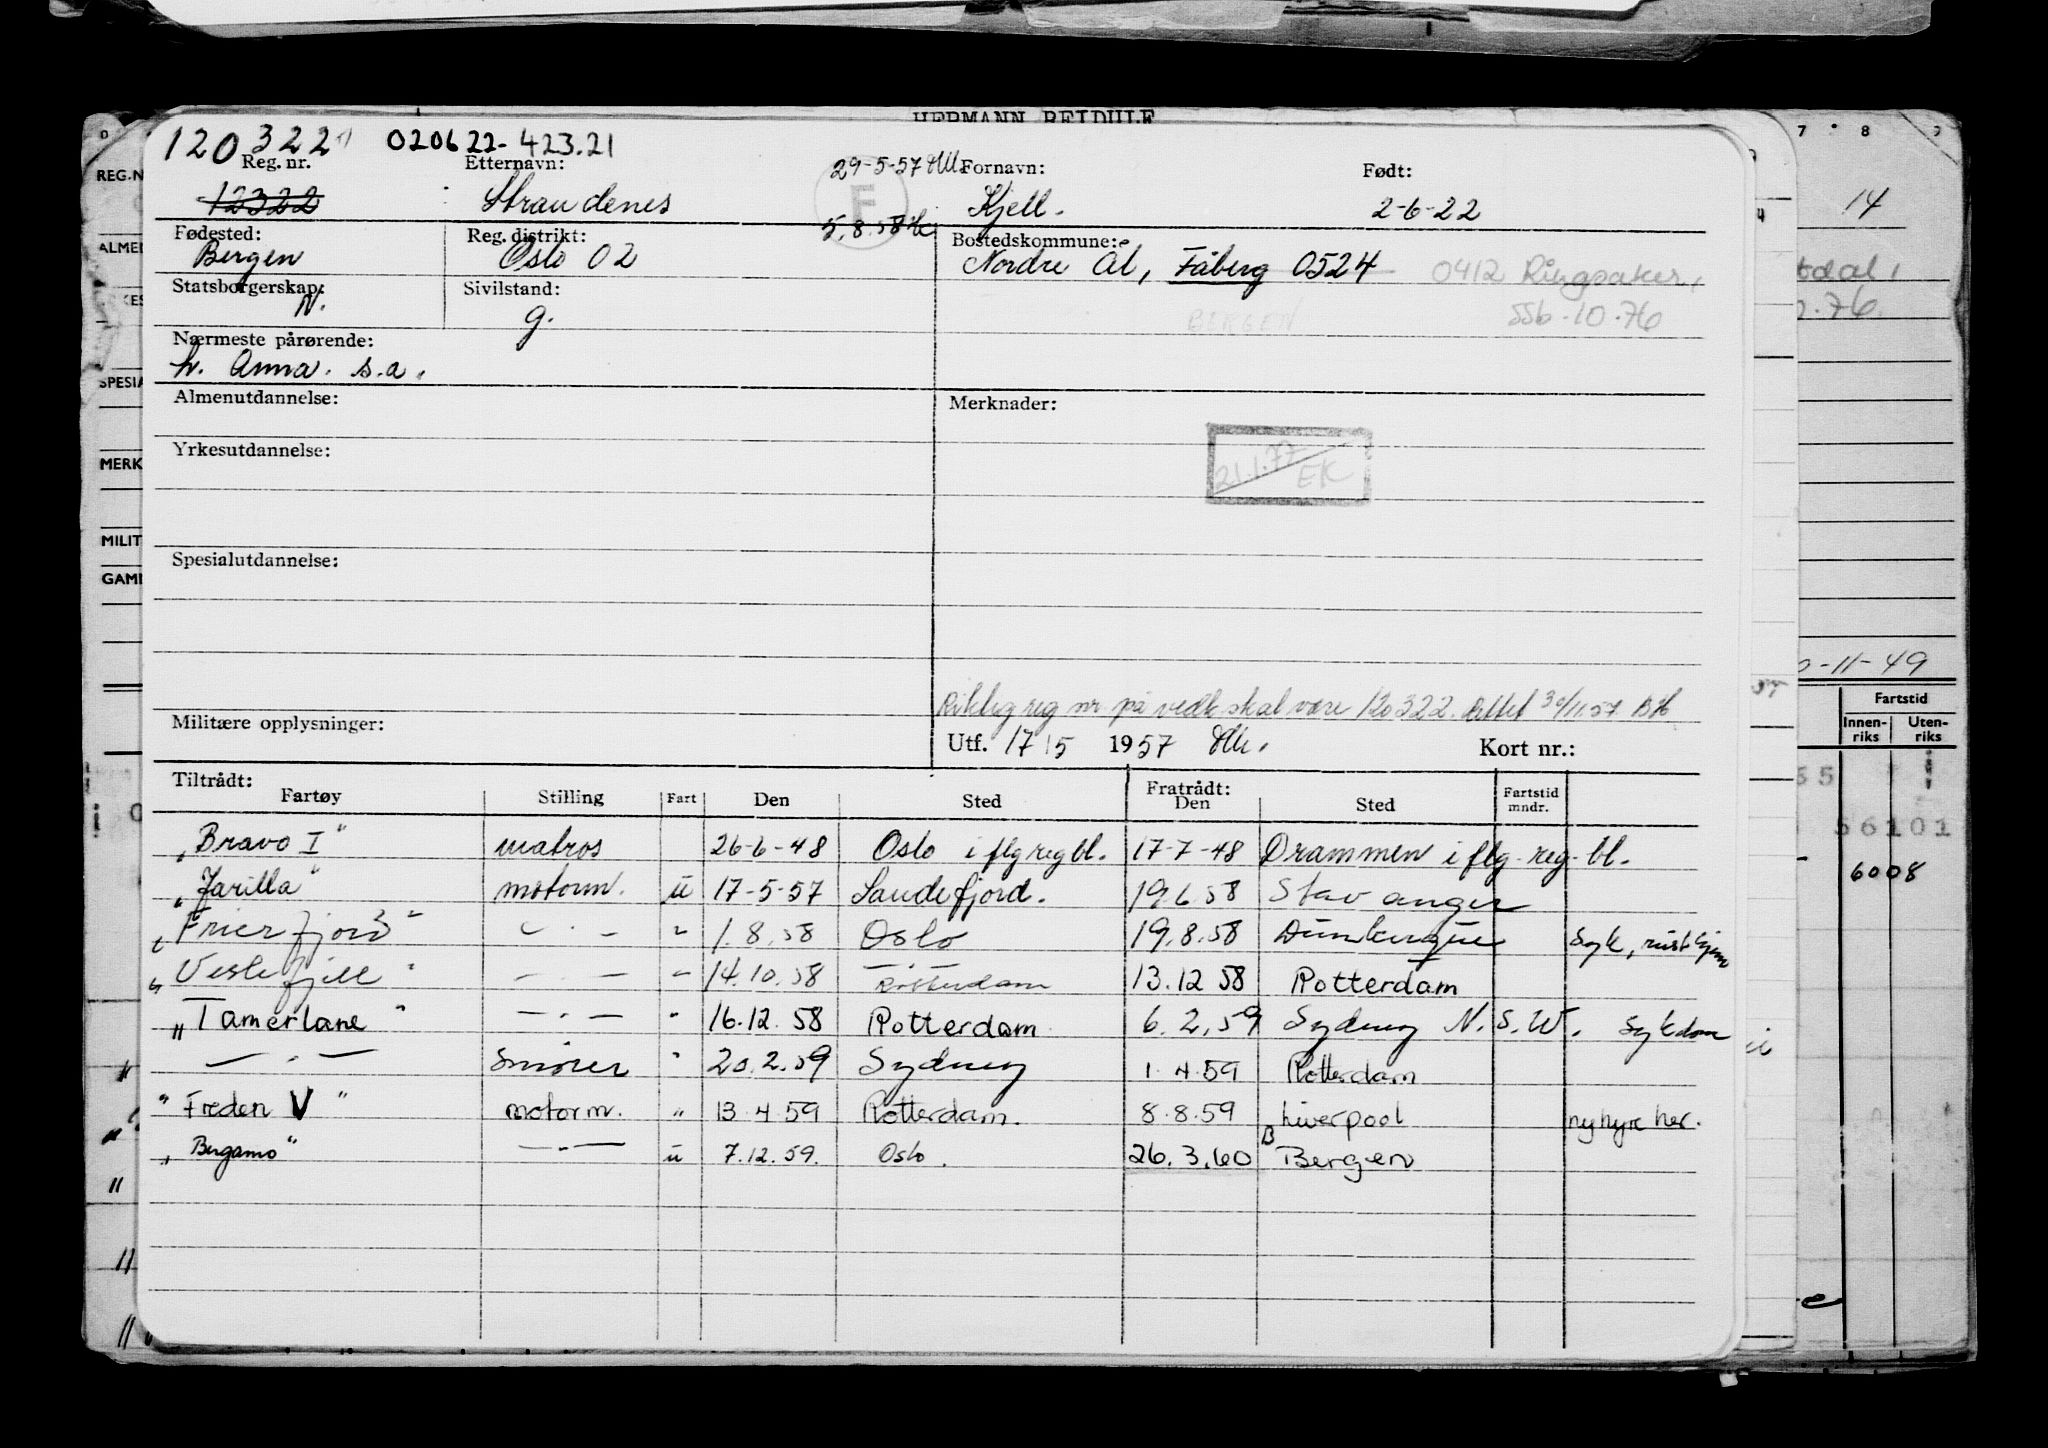 HERMANN REIDULF
120322 020622-423.21
Reg. nr. Etternavn: 29-5-57 Fornavn: Født:
12322 Strandenes F Kjell. 2-6-22
5.8.58
Fødested: Reg. distrikt: Bostedskommune:
Bergen Oslo 02 Nordre Ål, Fåberg 0524 0412 Ringsaker,
Statsborgerskap: Sivilstand:
N. g. BERGEN 556-10-76
Nærmeste pårørende:
h. Anna. s.a.
Almenutdannelse: Merknader:
21.1.77 EK
Yrkesutdannelse:
Spesialutdannelse:
Riktig reg nr på vedk skal være 120322. Rettet 30/11.57
Militære opplysninger: Utf. 17/5 1957 Kort nr.:
Tiltrådt: Fratrådt:
Fartøy Stilling Fart Den Sted Den Sted Fartstid mndr.
"Bravo I" matros 26-6-48 Oslo i flg reg bl. 17-7-48 Drammen i flg. reg. bl.
"Jarilla" motorm. u 17-5-57 Sandefjord. 19.6.58 Stavanger
"Frierfjord" - . - " 1.8.58 Oslo 19.8.58 Dunkerque Syk, reist hjem
"Veslefjell" - . - " 14.10.58 Rotterdam 13.12 58 Rotterdam
"Tamerlane" - . - " 16.12.58 Rotterdam 6.2.59 Sydney N.S.W. Sykdom
- . - Smører " 20.2.59 Sydney 1.4.59 Rotterdam
"Freden V" motorm. " 13.4.59 Rotterdam. 8.8.59 Liverpool ny hyre her.
"Bergamo" - . - u 7.12.59. Oslo. 26.3.60 B Bergen
7 8 9
REG.N
14
ALMEN
KES
SPESIA
MERK
MILIT
GAML
-11-49
Fartstid
Innenriks Utenriks
56101
6008